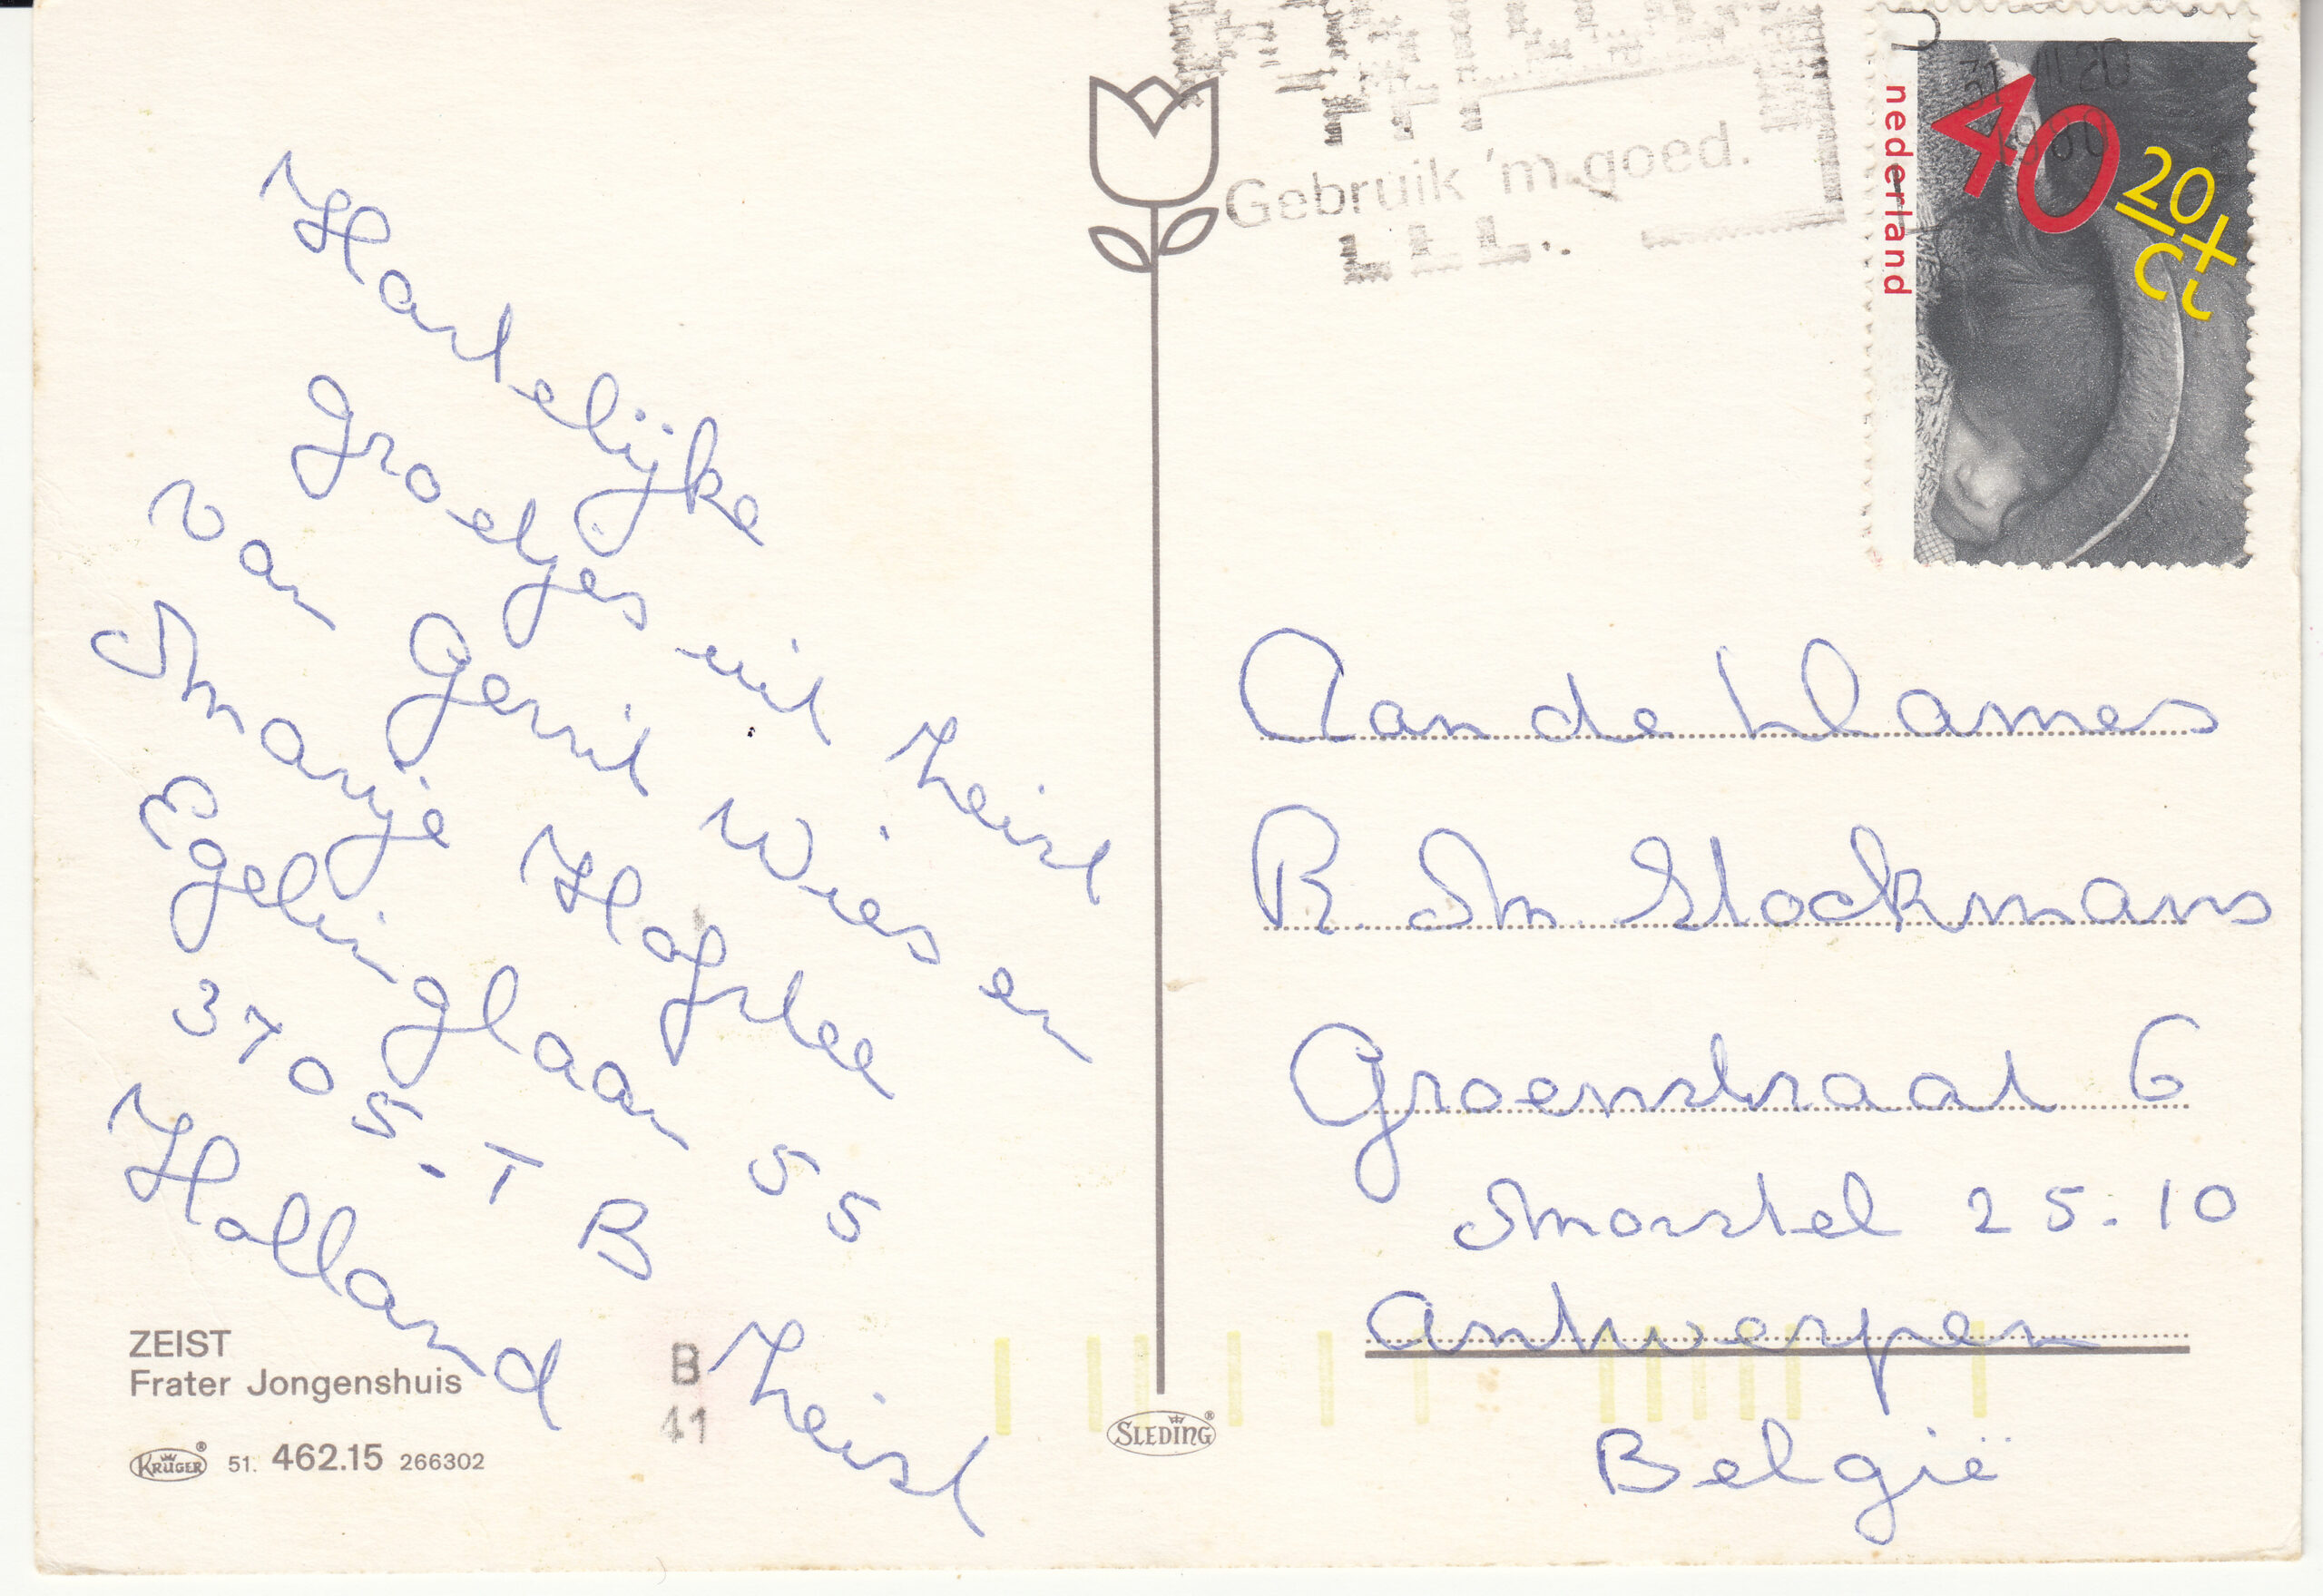 Hartelijke
groetjes uit Zeist
van Gerrit Wies en
Marije Hofstee
Egelinglaan 55
3705.TB Zeist
Holland
ZEIST
Frater Jongenshuis
KRÜGER® 51. 462.15 266302
B
41
SLEDING®
Gebruik 'm goed.
nederland
40
20
ct
Aan de Dames
R. M. Stockmans
Groenstraat 6
Mortsel 25.10
Antwerpen
België